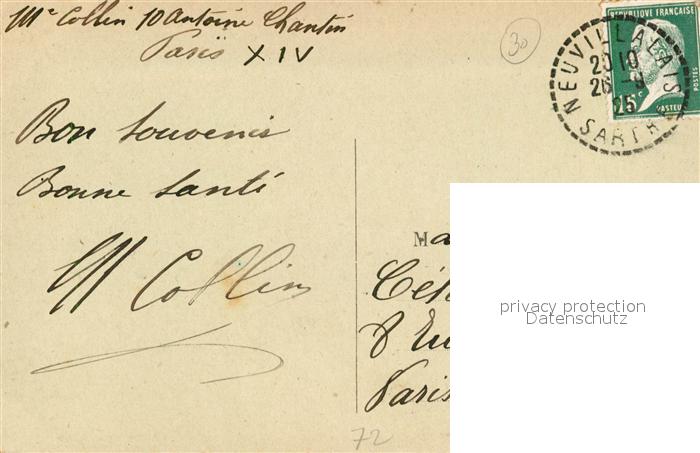 Mᵉ Collin 10 Antoine Chantin
Paris XIV
30
REPUBLIQUE FRANÇAISE
POSTES
PASTEUR
NEUVILLALAIS
20 10
26 - 9
25
SARTHE
Bon souvenir
Bonne santé
M Collin
Ma
Cés
8 Ru
Paris
72
privacy protection
Datenschutz